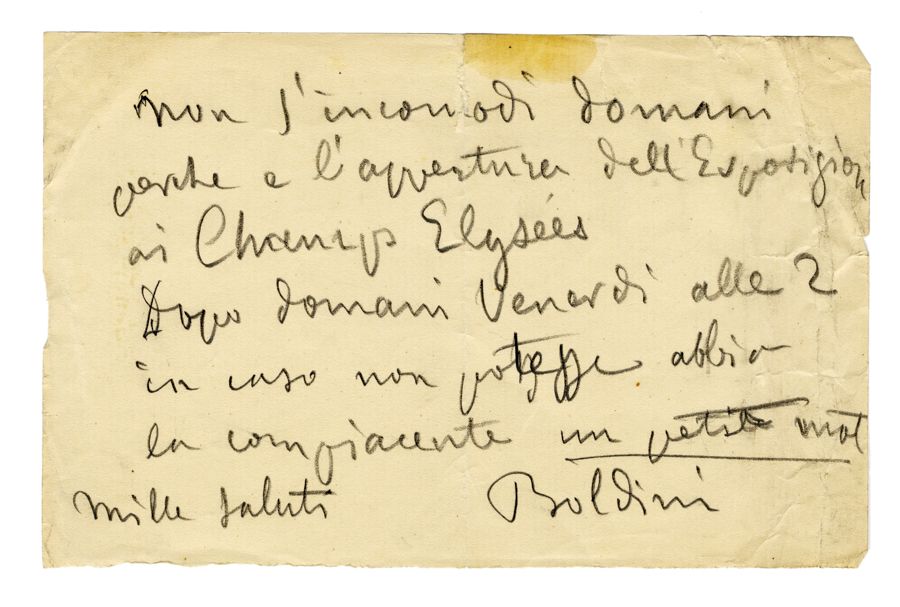 non s'incomodi domani
perche e l'appertura dell'Esposizion
ai Champs Elysées
Dopo domani Venerdi alle 2
in caso non potesse abbia
la compiacente un petit mot
mille saluti Boldini